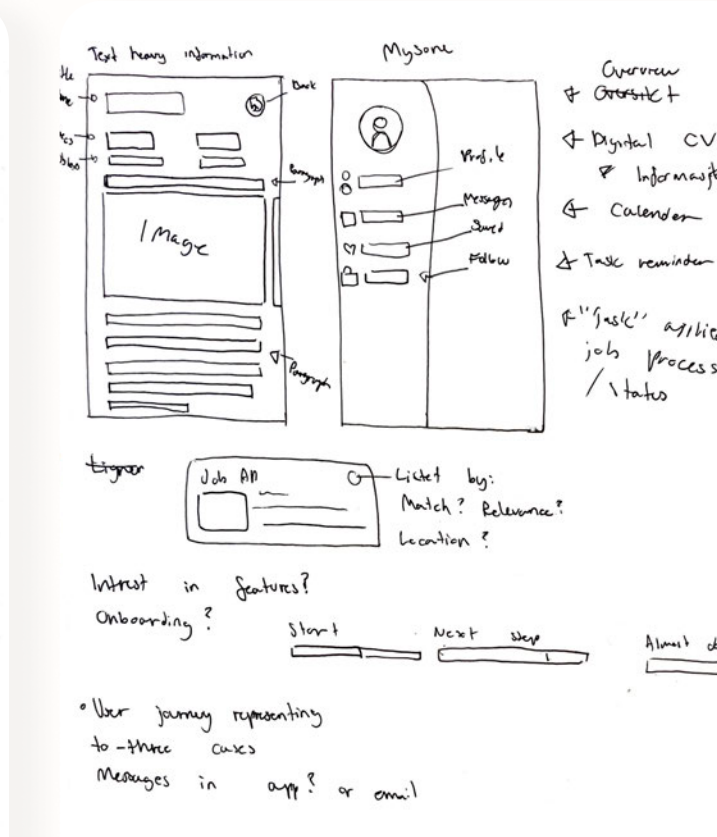 Text heavy information
Back
Paragraph
Image
Paragraph
Mysone
Profile
Messages
Saved
Follow
Overview
Oversikt
Digital CV
Calender
Task reminder
"Task"
job process
/ status
Job An
Listet by:
Match? Relevance?
Location?
Intrest in features?
Onboarding?
Start
Next step
Almost
• User journey representing
to-three cases
Messages in app? or email